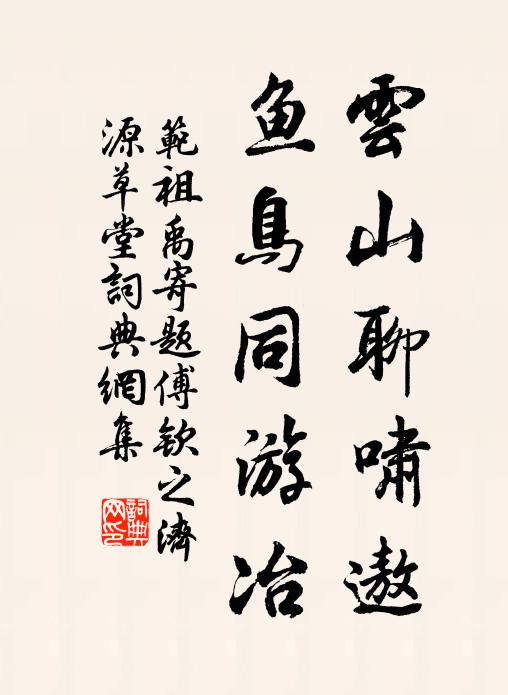 雲山聊嘯遨
鱼鳥同游冶
範祖禹寄題傅欽之濟
源草堂詞典網集
詞典
网印